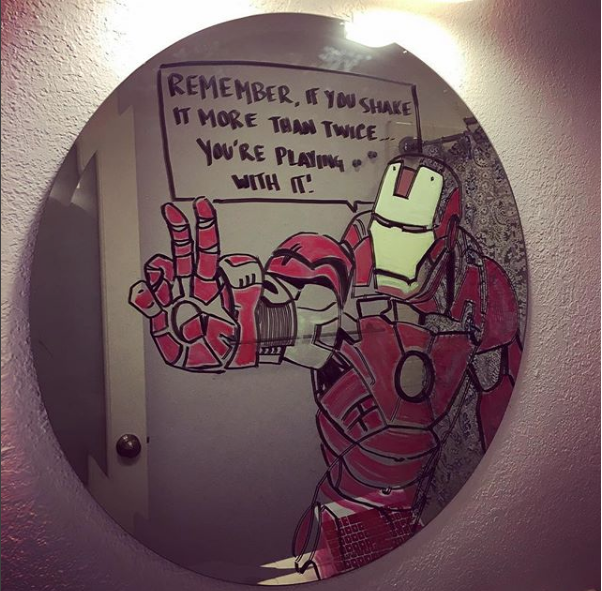 REMEMBER, IF YOU SHAKE
IT MORE THAN TWICE...
YOU'RE PLAYING
WITH IT!